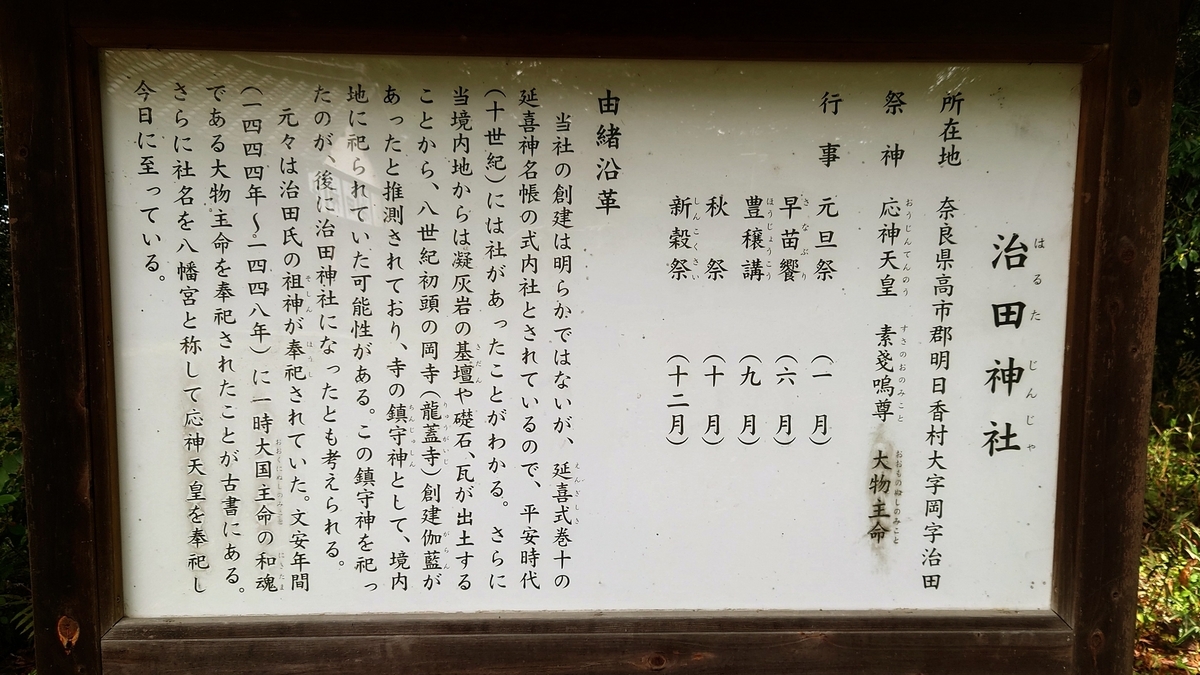 治田神社
所在地　奈良県高市郡明日香村大字岡字治田
祭神　応神天皇　素戔嗚尊　大物主命
行事　元旦祭　（一月）
早苗饗　（六月）
豊穣講　（九月）
秋祭　（十月）
新穀祭　（十二月）
由緒沿革
当社の創建は明らかではないが、延喜式巻十の
延喜神名帳の式内社とされているので、平安時代
（十世紀）には社があったことがわかる。さらに
当境内地からは凝灰岩の基壇や礎石、瓦が出土する
ことから、八世紀初頭の岡寺（龍蓋寺）創建伽藍が
あったと推測されており、寺の鎮守神として、境内
地に祀られていた可能性がある。この鎮守神を祀っ
たのが、後に治田神社になったとも考えられる。
元々は治田氏の祖神が奉祀されていた。文安年間
（一四四四年～一四四八年）に一時大国主命の和魂
である大物主命を奉祀されたことが古書にある。
さらに社名を八幡宮と称して応神天皇を奉祀し
今日に至っている。